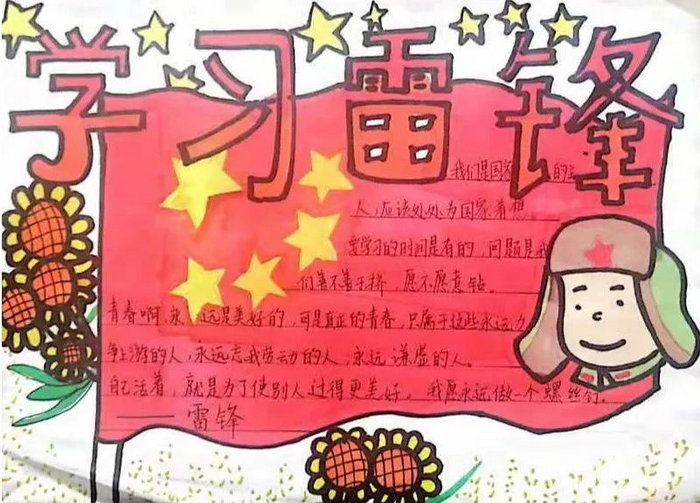 学习雷锋
我们是国家的主
人,应该处处为国家着想。
要学习的时间是有的,问题是我
们善不善于挤,愿不愿意钻。
青春啊,永远是美好的,可是真正的青春,只属于这些永远力
争上游的人,永远忘我劳动的人,永远谦虚的人。
自己活着,就是为了使别人过得更美好。我愿永远做一个螺丝钉。
——雷锋